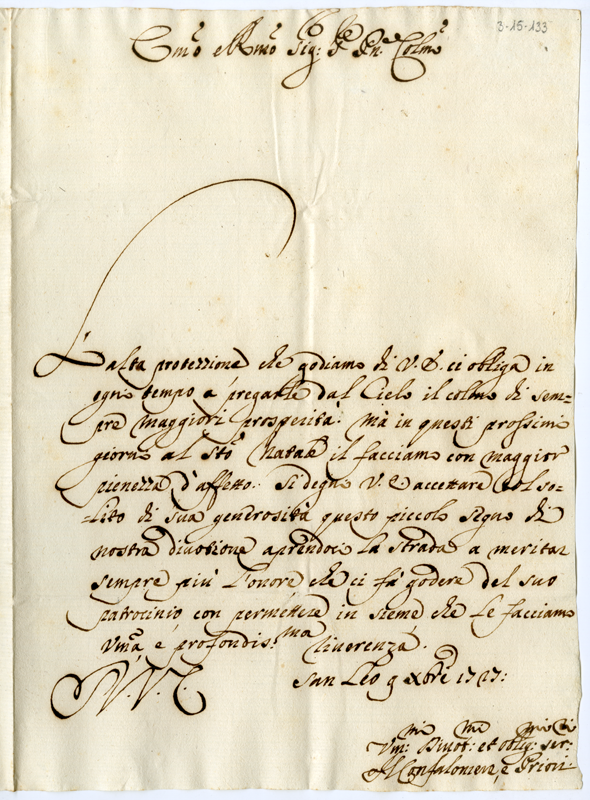 3-15-133
Em.º e Rmo Sig: Pre Pne Colmo
L'alta protezzione che godiamo di V. E. ci obliga in
ogni tempo a pregarle dal Cielo il colmo di sem=
pre maggiori prosperità. Mà in questi prossimi
giorni al Sto Natale il facciamo con maggior
pienezza d'affetto. Si degni V. E accettare col so=
=lito di sua generosità questo piccolo segno di
nostra divotione aprendoci la strada a meritar
sempre più l'onore che ci fà godere del suo
patrocinio con permettere in sieme che le facciamo
Vmã, e profondis.ma riverenza.
D. V. E.
San Leo 9 Xbre 1727:
Vmi: Divot:mi et oblig:mi ser:ri
Il Confaloniere, e Priori